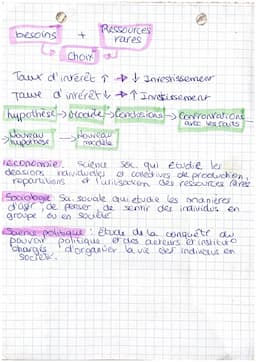 besoins + Ressources rares
Choix
Taux d'intérêt ↑ → ↓ Investissement
Taux d'intérêt ↓ → ↑ Investissement
hypothèse → modèle → Conclusions → Confrontations avec les faits
→ Nouveau hypothèse → Nouveau modèle
économie: Science soc. qui étudie les
décisions individuelles et collectives de production,
répartitions et l'utilisation des ressources rares
Sociologie: Sa. sociale qui étudie les manières
d'agir, de penser, de sentir des individus en
groupe ou en société.
Science politique: étude de la conquête du
pouvoir politique et des acteurs et institut°
chargés d'organiser la vie des individus en
société.